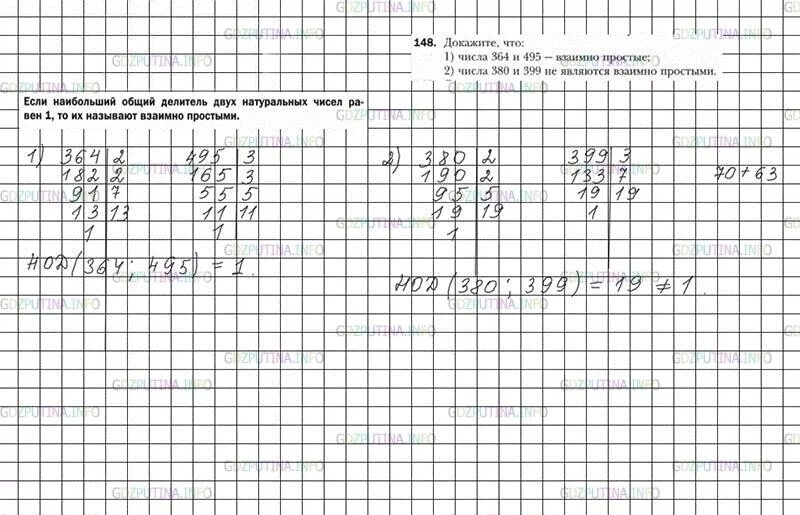 148. Докажите, что:
1) числа 364 и 495 – взаимно простые;
2) числа 380 и 399 не являются взаимно простыми.
Если наибольший общий делитель двух натуральных чисел ра-
вен 1, то их называют взаимно простыми.
1) 364 | 2   495 | 3
182 | 2   165 | 3
91 | 7   55 | 5
13 | 13   11 | 11
1   1
НОД(364; 495) = 1.
2) 380 | 2   399 | 3   70 + 63
190 | 2   133 | 7
95 | 5   19 | 19
19 | 19   1
1
НОД(380; 399) = 19 ≠ 1.
GDZPUTINA.INFO